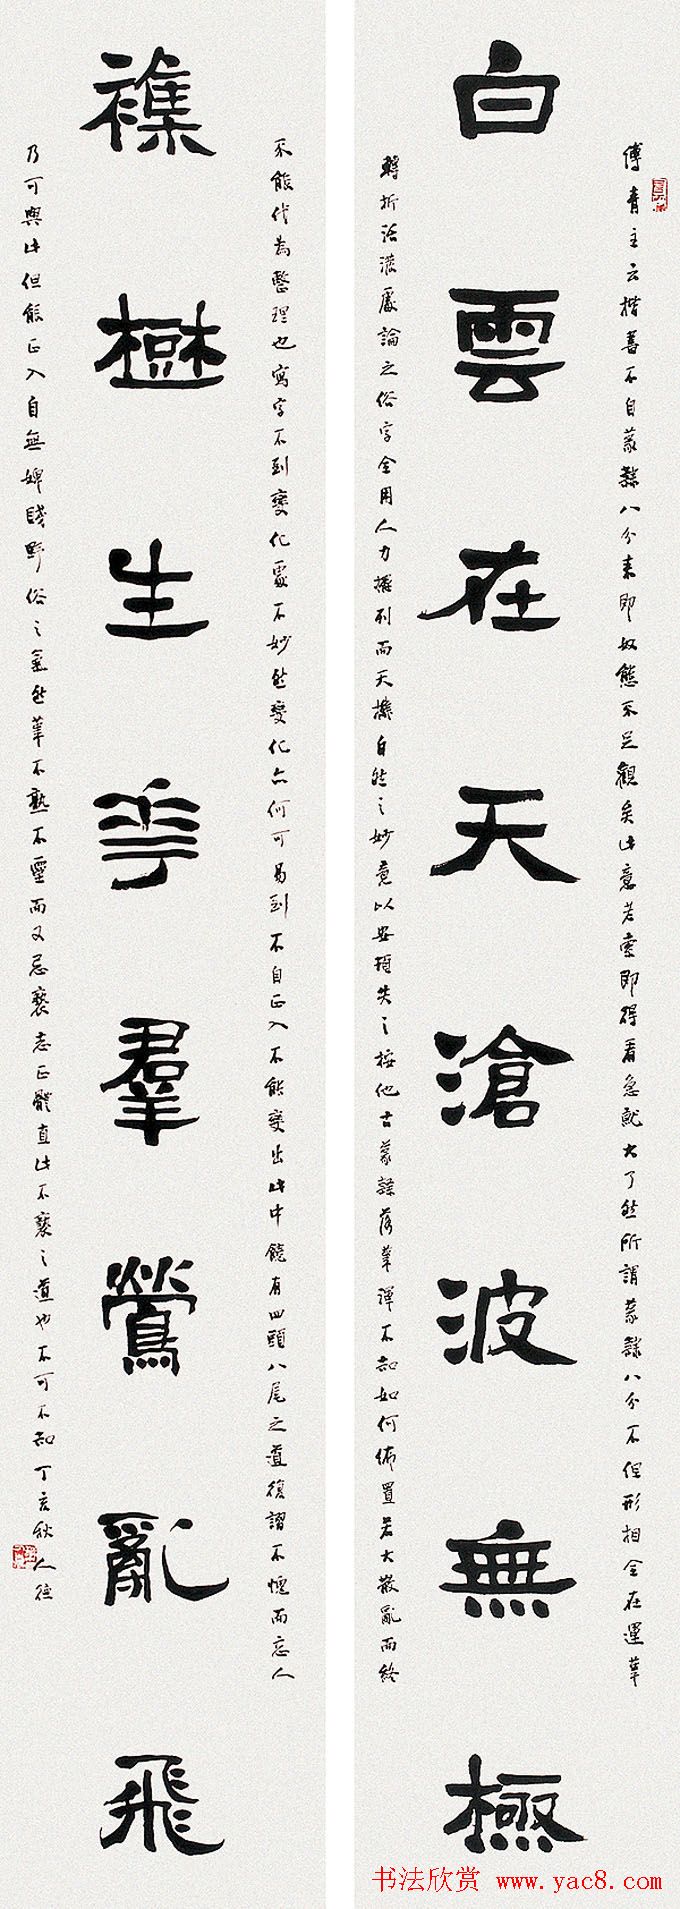 白雲在天滄波無極
傅青主云楷書不自篆隸八分來即奴態不足觀矣此意老索即得看急就大了然所謂篆隸八分不但形相全在運筆
轉折活潑處論之俗字全用人力擺列而天機自然之妙竟以安頓失之按他古篆隸落筆渾不知如何佈置若大散亂而終
襍樹生華羣鶯亂飛
不能代為整理也寫字不到變化處不妙然變化亦何可易到不自正入不能變出此中饒有四頭八尾之道復謂不愧而忘人
乃可與此但能正入自無婢賤野俗之氣然筆不熟不靈而又忌褻志正體直此不褻之道也不可不知丁亥秋人德
书法欣赏 www.yac8.com